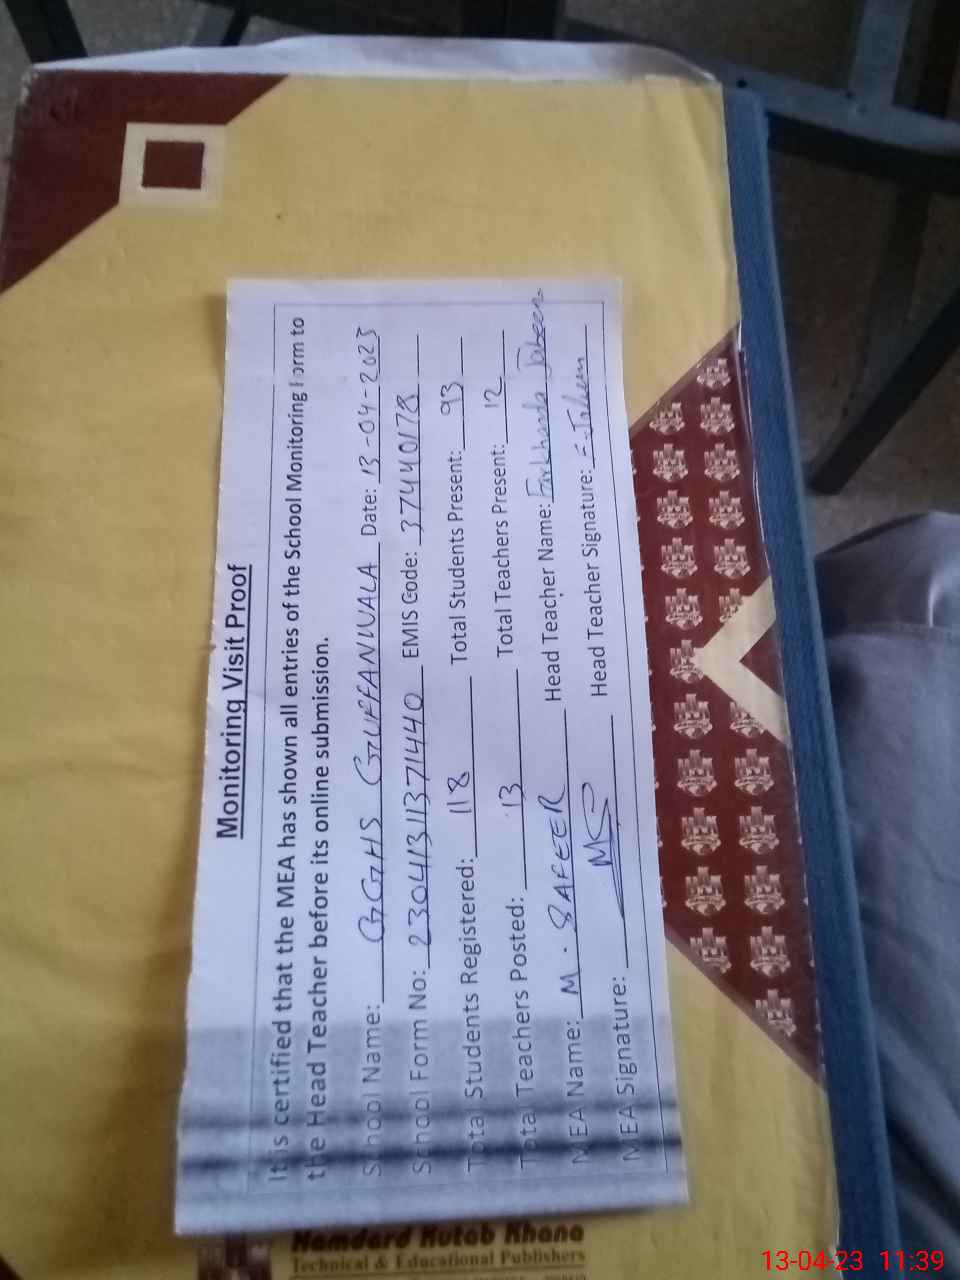 Monitoring Visit Proof
It is certified that the MEA has shown all entries of the School Monitoring Form to
the Head Teacher before its online submission.
School Name: GGHS GUFFANWALA Date: 13-04-2023
School Form No: 23041311371440 EMIS Code: 37440178
Total Students Registered: 118 Total Students Present: 93
Total Teachers Posted: 13 Total Teachers Present: 12
MEA Name: M. SAFEER Head Teacher Name: Farkhanda Jabeen
MEA Signature: MS Head Teacher Signature: F. Jabeen
Hamdard Kutab Khana
Technical & Educational Publishers
13-04-23 11:39